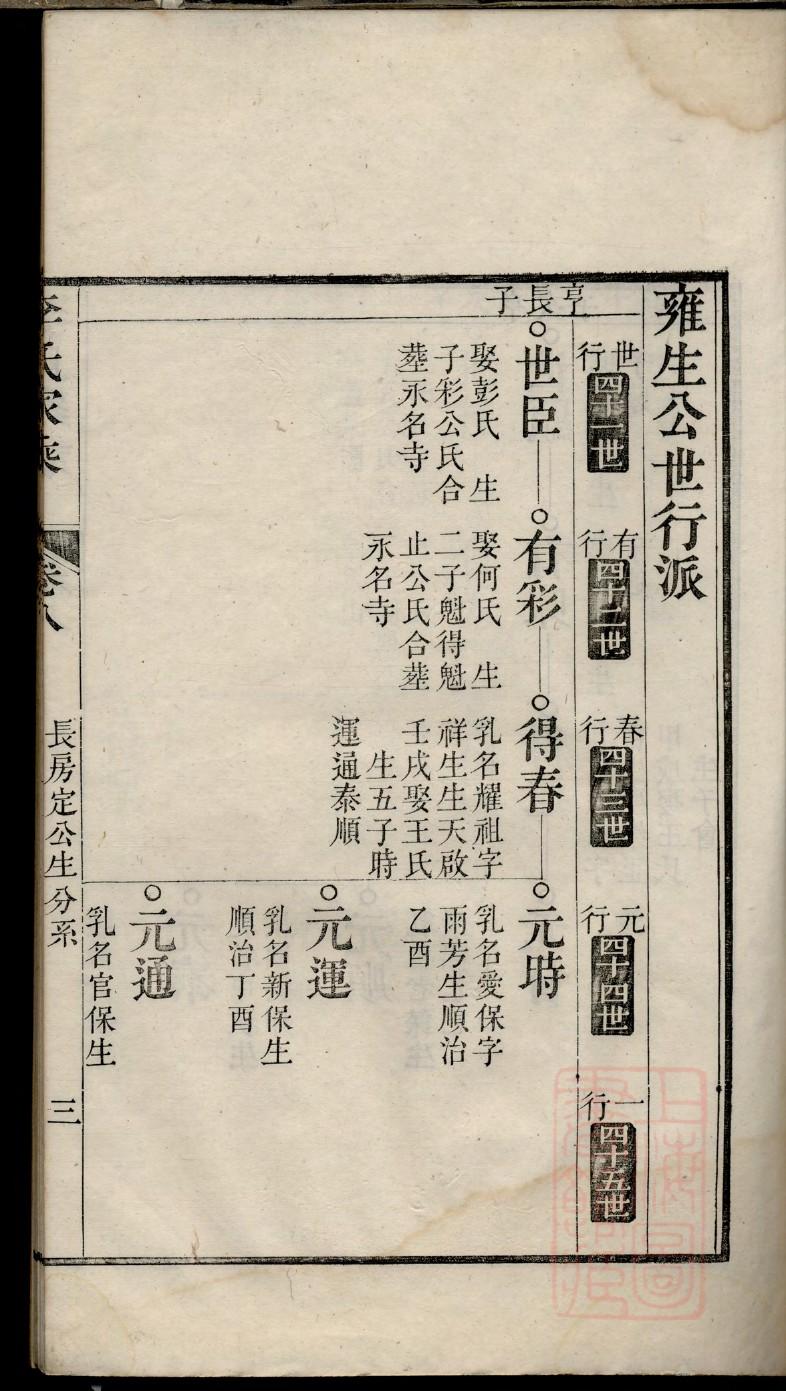 雍生公世行派
世行
四十一世
有行
四十二世
春行
四十三世
元行
四十四世
一行
四十五世
亨長子
世臣
娶彭氏　生
子彩公氏合
塟永名寺
有彩
娶何氏　生
二子魁得魁
止公氏合塟
永名寺
得春
乳名耀祖字
祥生生天啟
壬戌娶王氏
生五子時
運通泰順
元時
乳名愛保字
雨芳生順治
乙酉
元運
乳名新保生
順治丁酉
元通
乳名官保生
李氏家乘
卷八
長房定公生分系
三